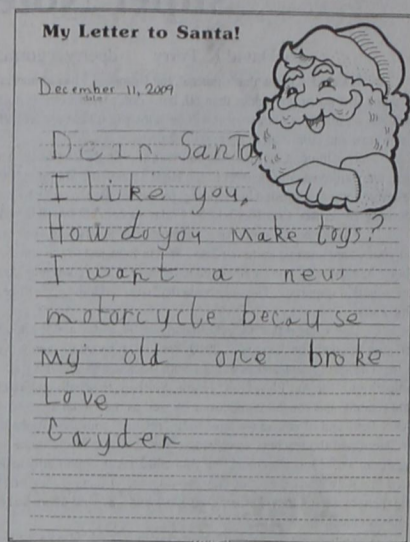 My Letter to Santa!
December 11, 2009
Date
Dear Santa,
I like you,
How do you make toys?
I want a new
motorcycle because
My old one broke
Love
Cayden